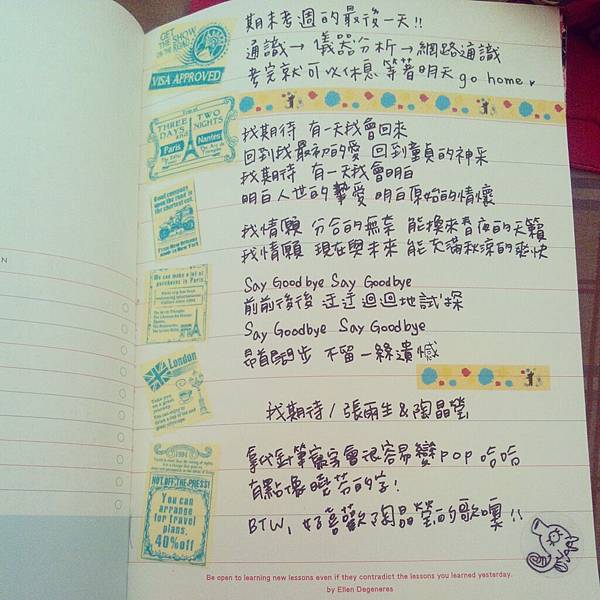 期末考週的最後一天!!
通識→儀器分析→網路通識
考完就可以休息 等著明天 go home♥
我期待 有一天我會回來
回到我最初的愛 回到童貞的神采
我期待 有一天我會明白
明白人世的摯愛 明白原始的情懷
我情願 分合的無奈 能換來春夜的天籟
我情願 現在與未來 能充滿秋涼的爽快
Say Goodbye Say Goodbye
前前後後 迂迂迴迴地試探
Say Goodbye Say Goodbye
昂首闊步 不留一絲遺憾
我期待 / 張雨生&陶晶瑩
拿代針筆寫字會很容易變pop 哈哈
有點像曉芳的字!
BTW, 好喜歡陶晶瑩的歌嗓!!
Be open to learning new lessons even if they contradict the lessons you learned yesterday.
by Ellen Degeneres
GET THE SHOW ON THE ROAD!
VISA APPROVED
THREE DAYS and TWO NIGHTS
Paris
Nantes
Good company upon the road is the shortest cut.
From New Orleans
We can make a lot of purchases in Paris.
London
1984
HOT OFF THE PRESS!
You can arrange for travel plans.
40%off